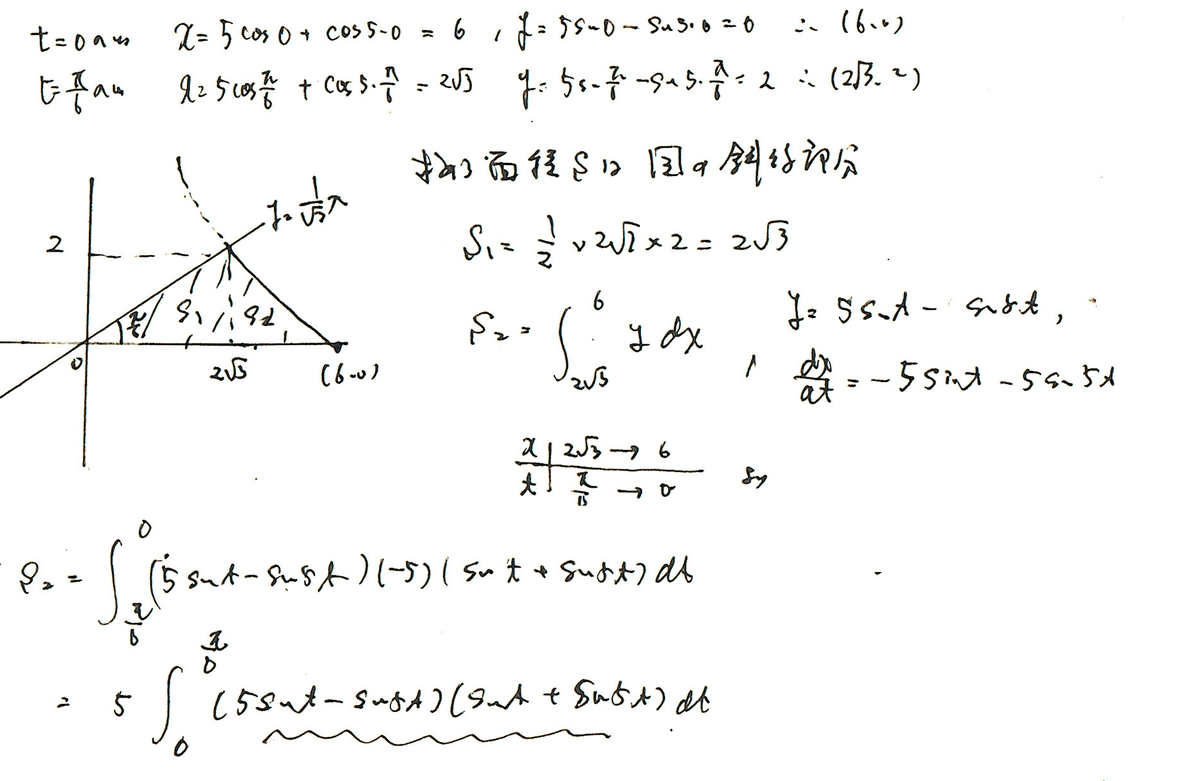 t=0のとき x=5cos0+cos5·0=6, y=5sin0-sin5·0=0 ∴(6,0)
t=π/6のとき x=5cosπ/6+cos5·π/6=2√3 y=5sinπ/6-sin5·π/6=2 ∴(2√3,2)
求める面積Sは図の斜線部分
y=1/√3 x
2
S₁=1/2×2√3×2=2√3
π/6 S₁ S₂
S₂=∫_{2√3}^{6} y dx y=5sint-sin5t,
0 2√3 (6,0)
dx/dt=-5sint-5sin5t
x | 2√3→6
t | π/6→0
S₂=∫_{π/6}^{0}(5sint-sin5t)(-5)(sint+sin5t)dt
=5∫_{0}^{π/6}(5sint-sin5t)(sint+sin5t)dt